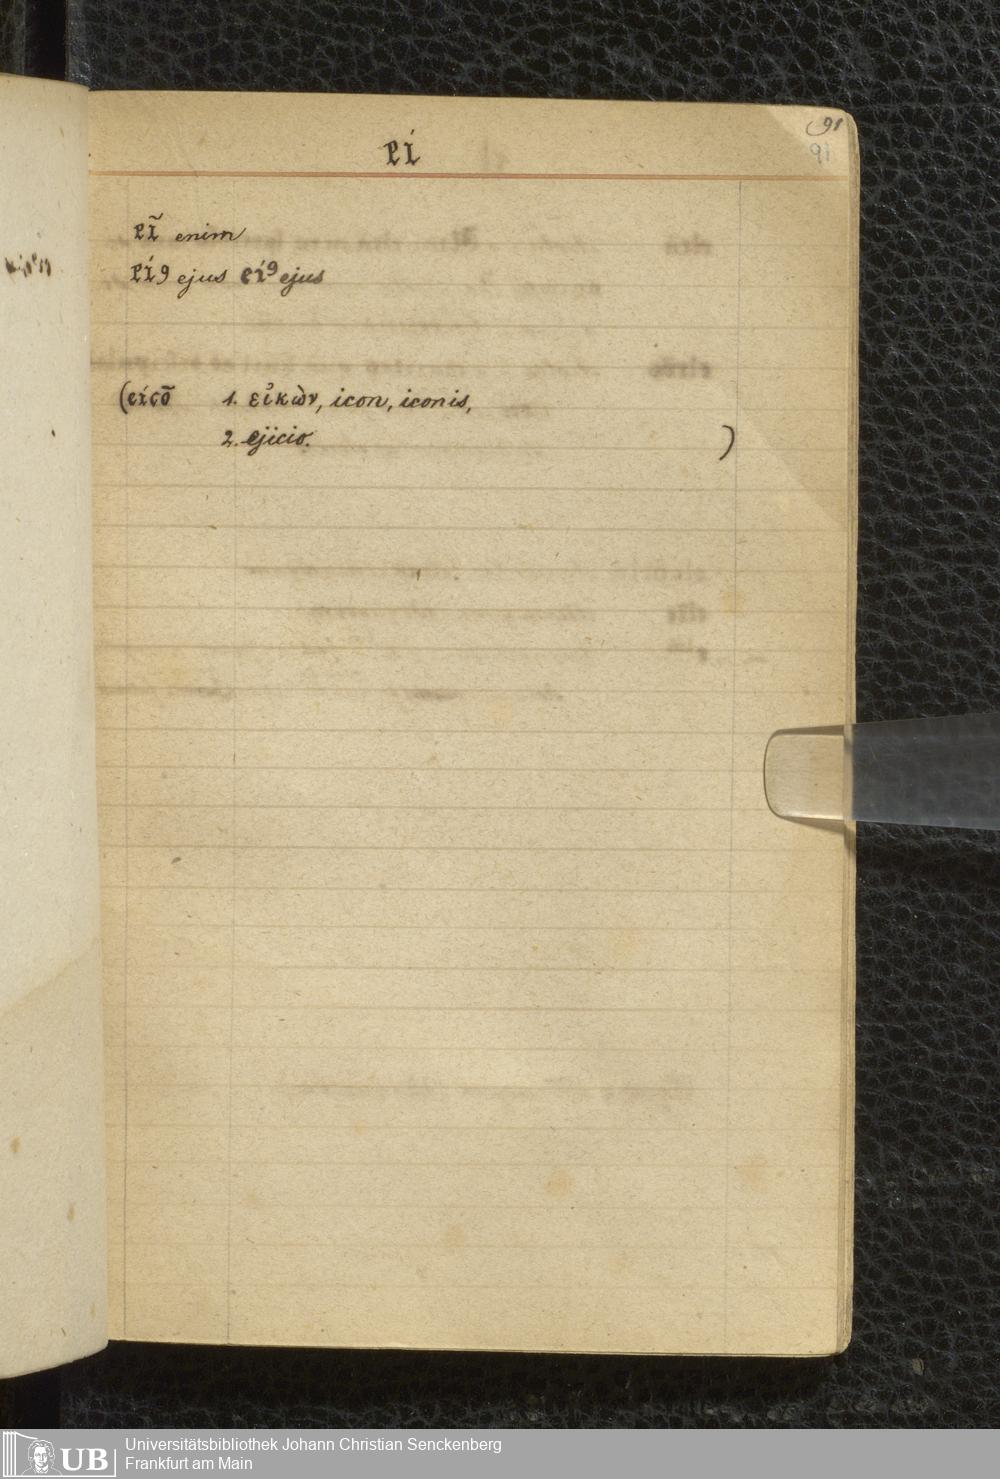 91
91
eí
eĩ enim
eí9 ejus eí⁹ ejus
(eícõ 1. εἰκὼν, icon, iconis,
2. ejicio. )
UB Universitätsbibliothek Johann Christian Senckenberg
Frankfurt am Main